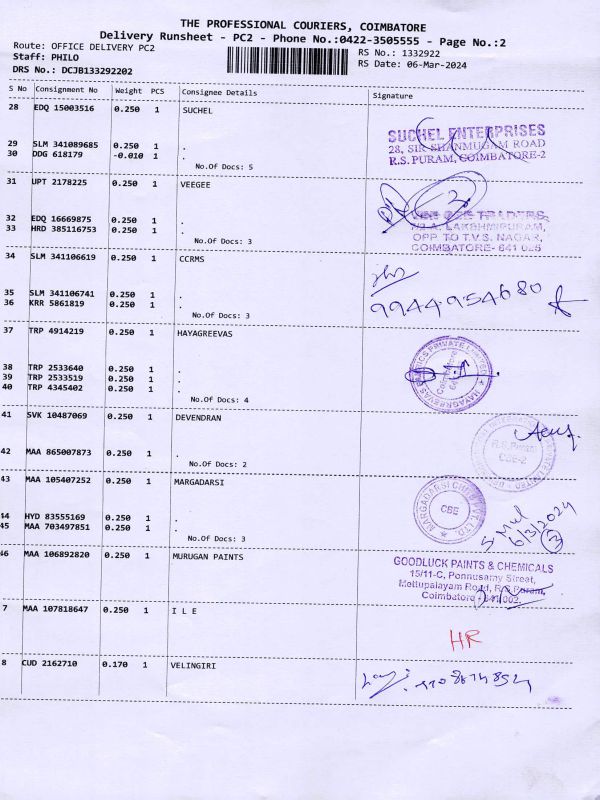 THE PROFESSIONAL COURIERS, COIMBATORE
Delivery Runsheet - PC2 - Phone No.:0422-3505555 - Page No.:2
Route: OFFICE DELIVERY PC2
RS No.: 1332922
Staff: PHILO
RS Date: 06-Mar-2024
DRS No.: DCJB133292202
S No Consignment No Weight PCS Consignee Details Signature
28 EDQ 15003516 0.250 1 SUCHEL
SUCHEL ENTERPRISES
29 SLM 341089685 0.250 1 .
28, SIR SHANMUGAM ROAD
30 DDG 618179 -0.010 1 .
R.S. PURAM, COIMBATORE-2
No.Of Docs: 5
31 UPT 2178225 0.250 1 VEEGEE
32 EDQ 16669875 0.250 1 .
TRADERS,
33 HRD 385116753 0.250 1 .
LAKSHMIPURAM,
OPP. TO T.V.S. NAGAR,
No.Of Docs: 3
COIMBATORE- 641 025
34 SLM 341106619 0.250 1 CCRMS
35 SLM 341106741 0.250 1 .
9944-954680
36 KRR 5861819 0.250 1 .
No.Of Docs: 3
37 TRP 4914219 0.250 1 HAYAGREEVAS
HAYAGREEVAS FABRICS PRIVATE LIMITED
Coimbatore
38 TRP 2533640 0.250 1 .
39 TRP 2533519 0.250 1 .
40 TRP 4345402 0.250 1 .
No.Of Docs: 4
41 SVK 10487069 0.250 1 DEVENDRAN
R.S. Puram
CBE-2
42 MAA 865007873 0.250 1 .
No.Of Docs: 2
43 MAA 105407252 0.250 1 MARGADARSI
MARGADARSI CHIT PVT LTD.
CBE
44 HYD 83555169 0.250 1 .
6/3/2024
45 MAA 703497851 0.250 1 .
3
No.Of Docs: 3
46 MAA 106892820 0.250 1 MURUGAN PAINTS
GOODLUCK PAINTS & CHEMICALS
15/11-C, Ponnusamy Street,
Mettupalayam Road, R.S.Puram,
Coimbatore - 641 002
7 MAA 107818647 0.250 1 I L E
HR
8 CUD 2162710 0.170 1 VELINGIRI